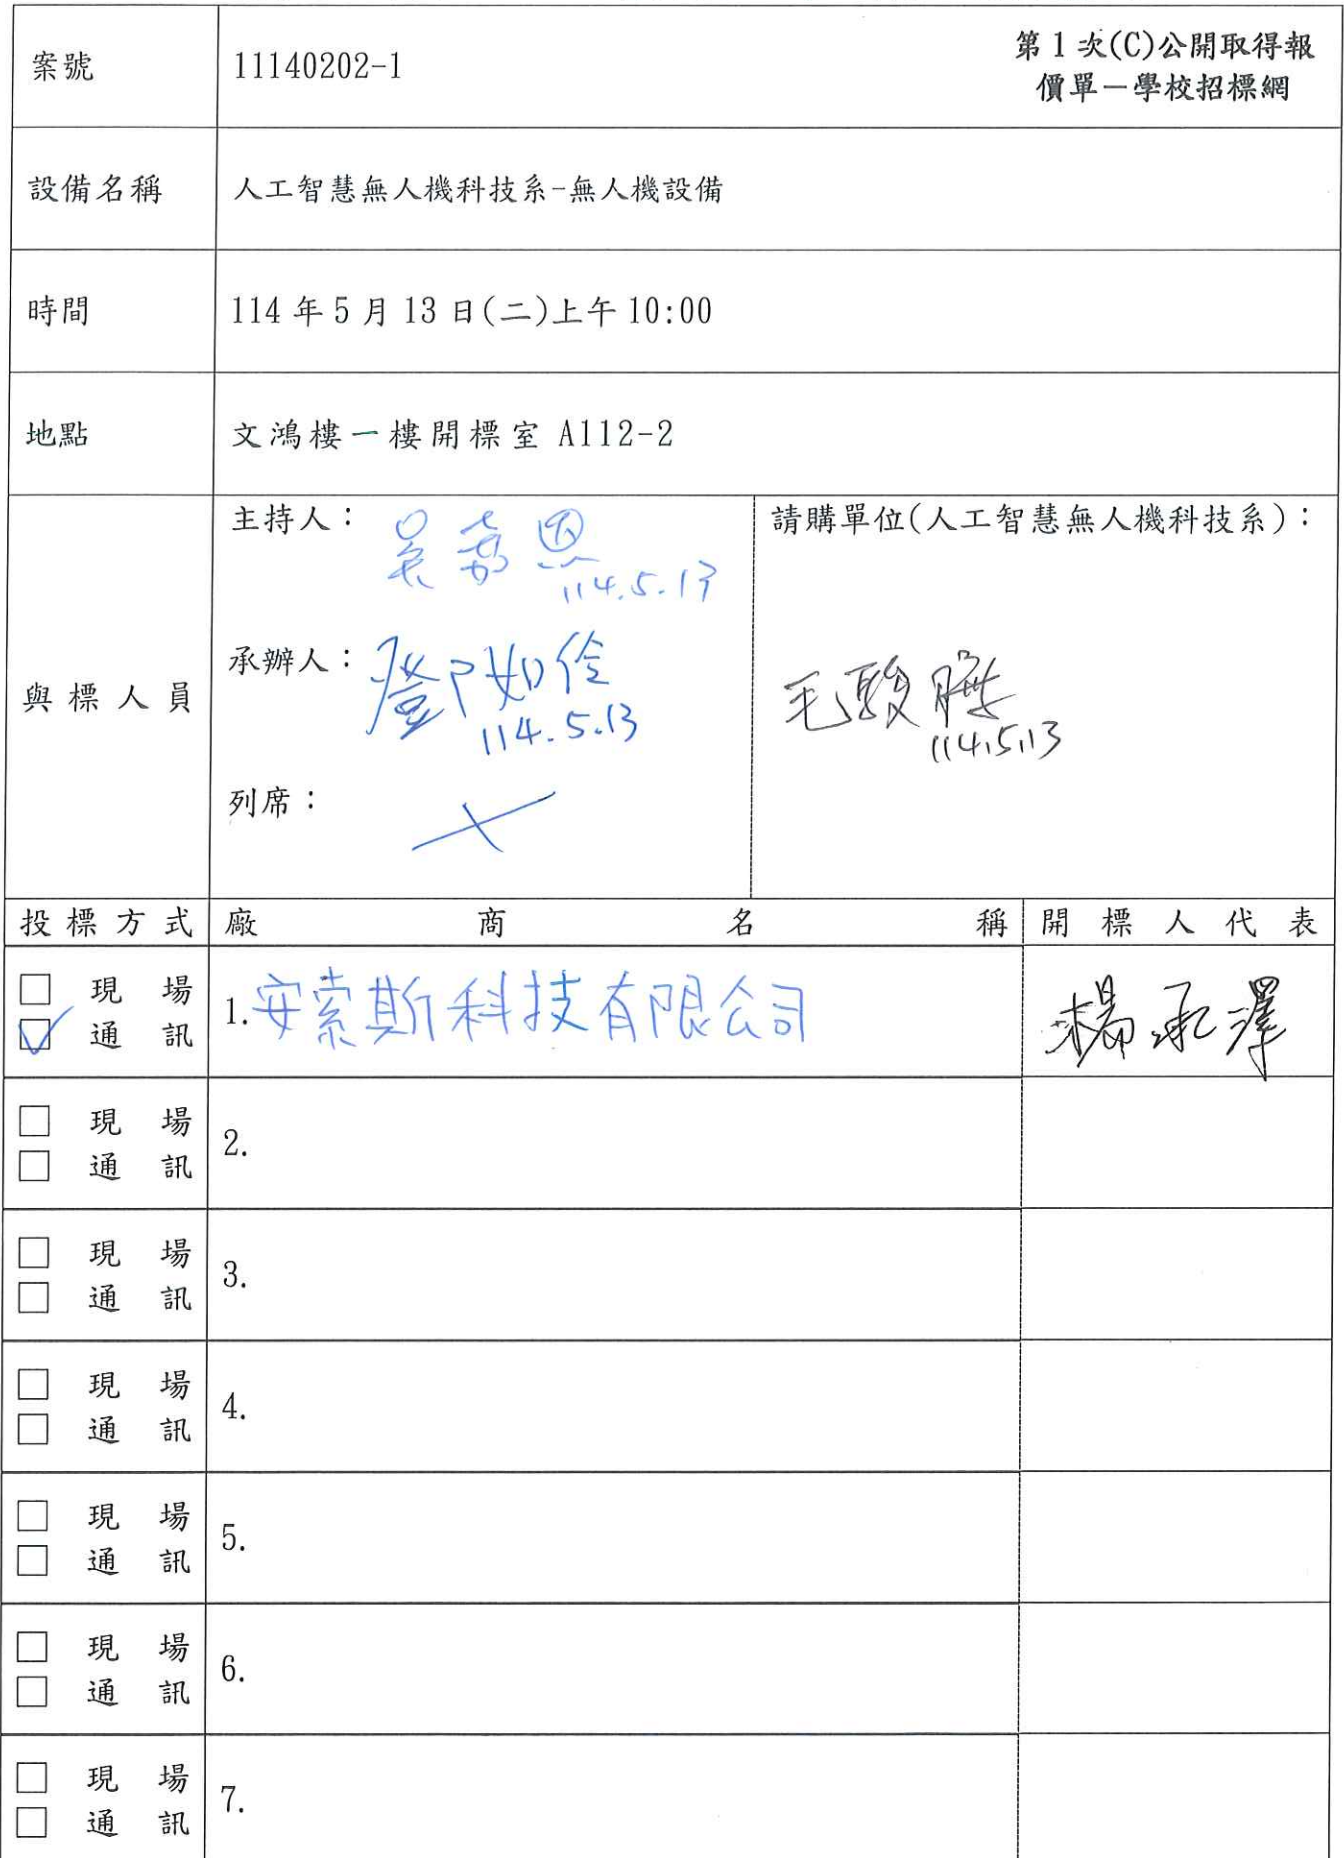 案號 11140202-1 第1次(C)公開取得報
價單－學校招標網
設備名稱 人工智慧無人機科技系-無人機設備
時間 114年5月13日(二)上午10:00
地點 文鴻樓一樓開標室 A112-2
與標人員
主持人： 吳嘉恩
114.5.13
承辦人： 鄧如伶
114.5.13
列席：
請購單位(人工智慧無人機科技系)：
毛駿
114.5.13
投標方式 廠商名稱 開標人代表
□ 現場
☑ 通訊
1. 安索斯科技有限公司 楊承澤
□ 現場
□ 通訊
2.
□ 現場
□ 通訊
3.
□ 現場
□ 通訊
4.
□ 現場
□ 通訊
5.
□ 現場
□ 通訊
6.
□ 現場
□ 通訊
7.